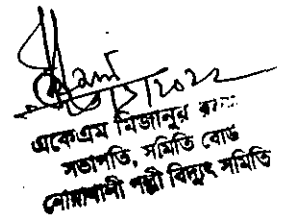 একেএম মিজানুর
সভাপতি, সমিতি বোর্ড
নোয়াখালী পল্লী বিদ্যুৎ সমিতি